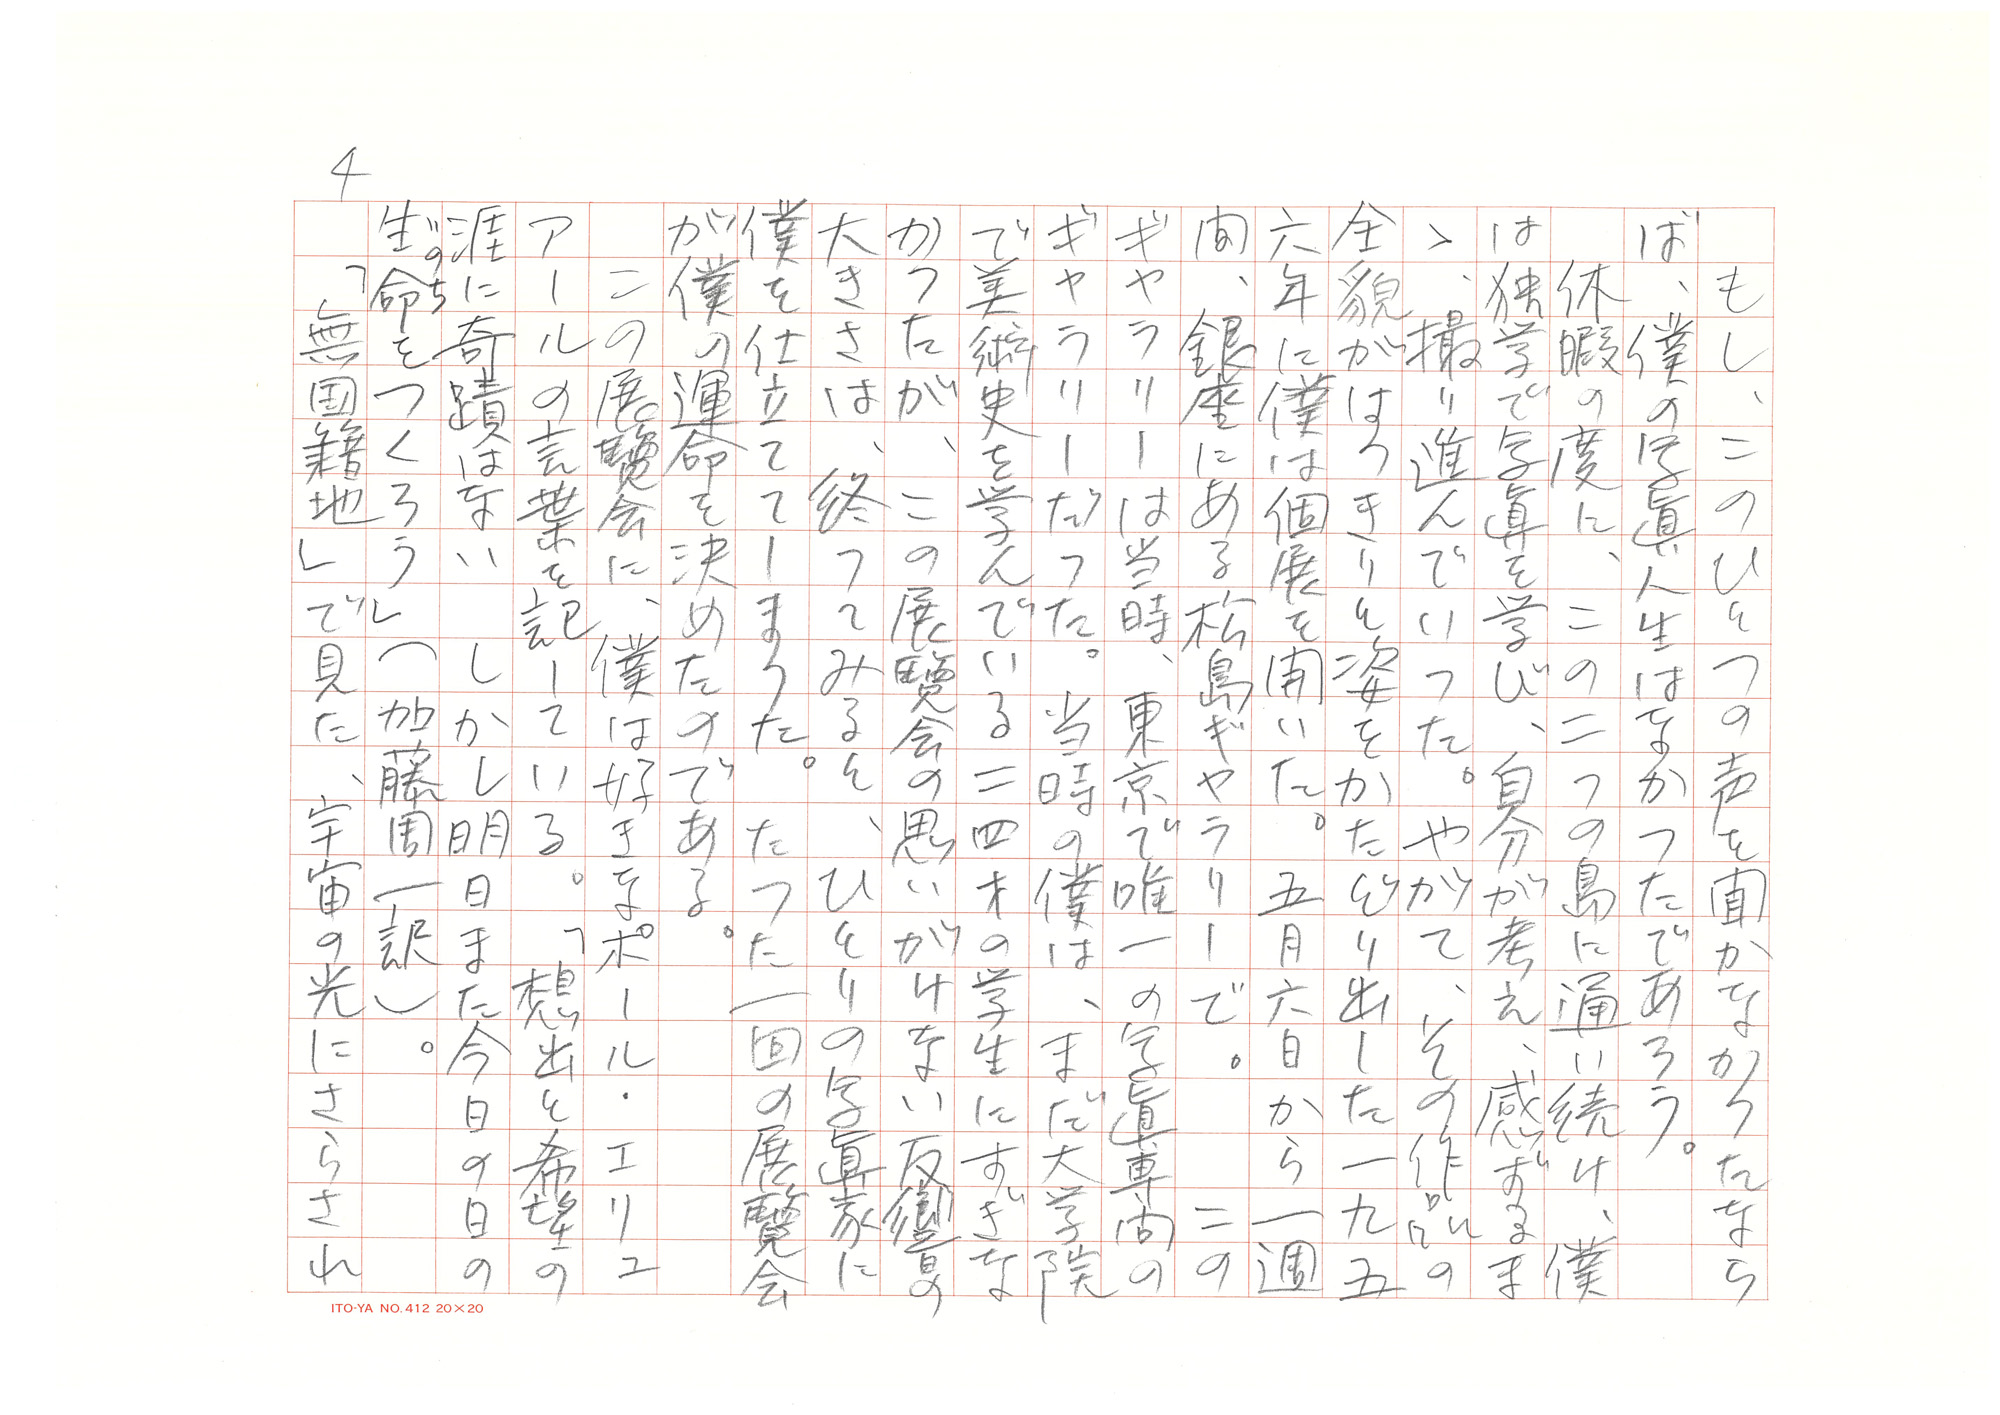 4
もし、このひとつの声を聞かなかったなら
ば、僕の写眞人生はなかったであろう。
休暇の度に、この二つの島に通い続け、僕
は独学で写眞を学び、自分が考え、感ずるま
ゝ、撮り進んでいった。やがて、その作品の
全貌がはっきりと姿をかたどり出した一九五
六年に僕は個展を開いた。五月六日から一週
間、銀座にある松島ギャラリーで。この
ギャラリーは当時、東京で唯一の写眞専門の
ギャラリーだった。当時の僕は、まだ大学院
で美術史を学んでいる二四才の学生にすぎな
かったが、この展覧会の思いがけない反響の
大きさは、終ってみると、ひとりの写眞家に
僕を仕立ててしまった。たった一回の展覧会
が僕の運命を決めたのである。
この展覧会に、僕は好きなポール・エリュ
アールの言葉を記している。「想出と希望の
涯に奇蹟はない　しかし明日また今日の日の
生命をつくろう」（加藤周一訳）。
いのち
「無国籍地」で見た、宇宙の光にさらされ
ITO-YA NO.412 20×20